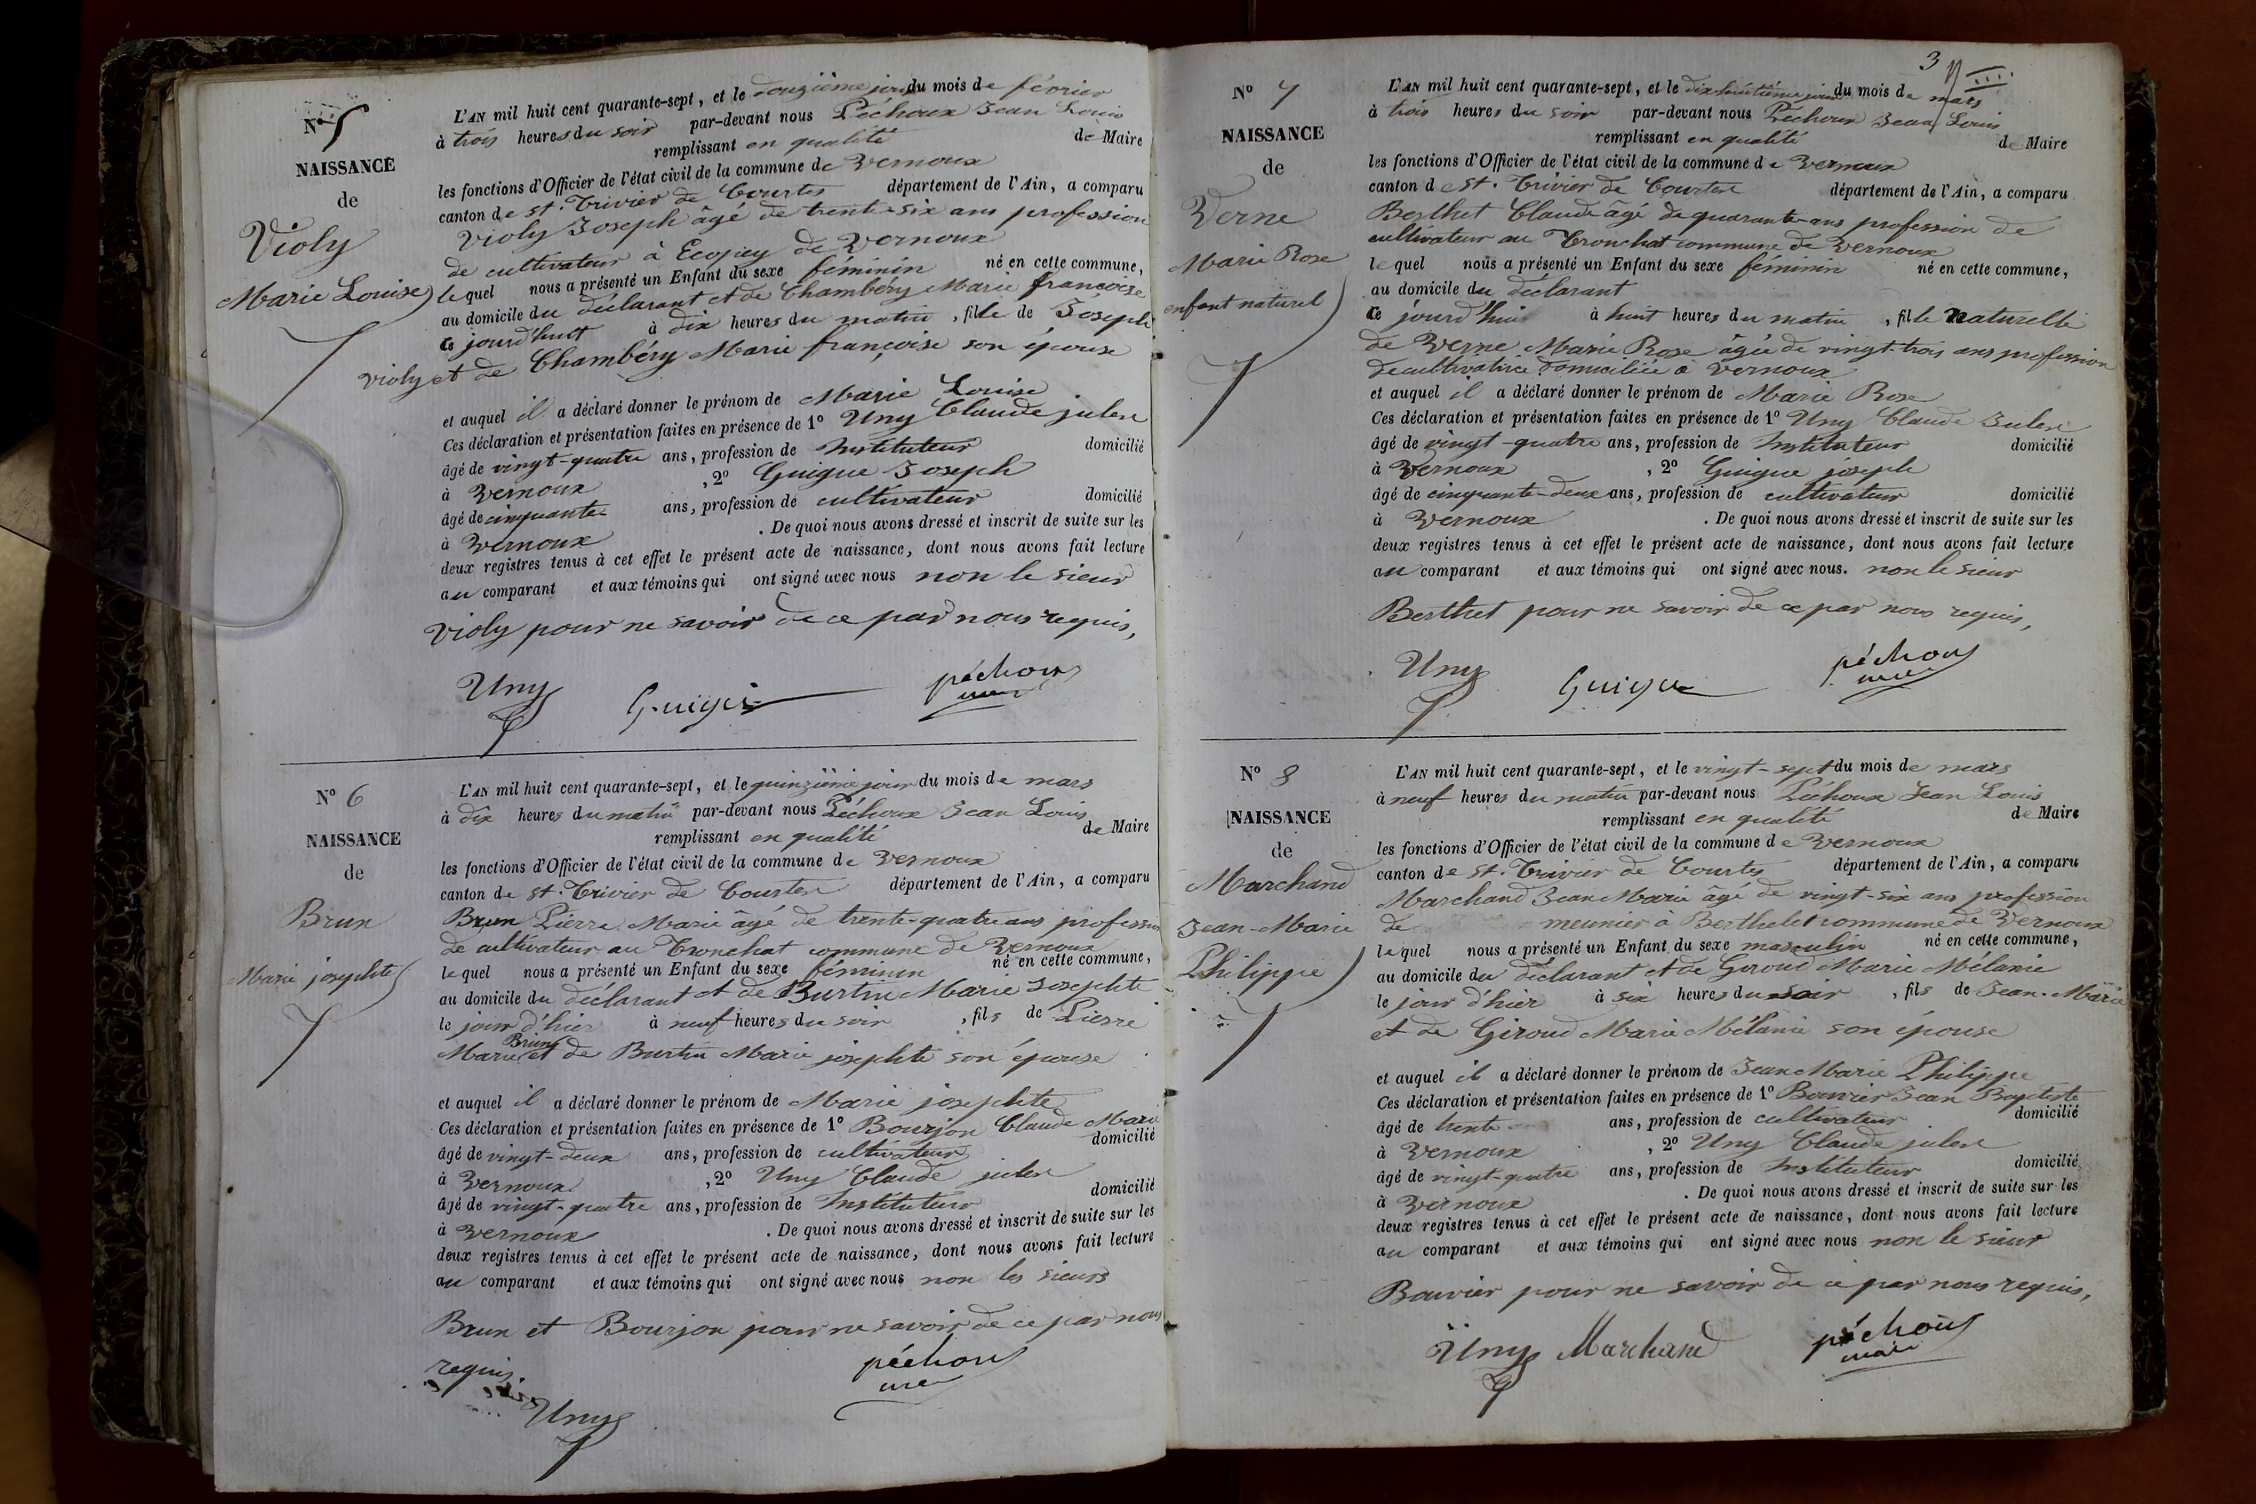 N° 5
NAISSANCE
de
Violy
Marie Louise
L'AN mil huit cent quarante-sept, et le douzième jour du mois de février
à trois heures du soir par-devant nous Péchoux Jean Louis
remplissant en qualité de Maire
les fonctions d'Officier de l'état civil de la commune de Vernoux
canton de St. Trivier de Courtes département de l'Ain, a comparu
Violy Joseph âgé de trente-six ans profession
de cultivateur à Ecopey de Vernoux
lequel nous a présenté un Enfant du sexe féminin né en cette commune,
au domicile du déclarant et de Chambéry Marie françoise
ce jourd'huit à dix heures du matin, fille de Joseph
Violy et de Chambéry Marie françoise son épouse
et auquel il a déclaré donner le prénom de Marie Louise
Ces déclaration et présentation faites en présence de 1° Uny Claude
âgé de vingt-quatre ans, profession de Instituteur domicilié
à Vernoux, 2° Guigue Joseph
âgé de cinquante ans, profession de cultivateur domicilié
à Vernoux. De quoi nous avons dressé et inscrit de suite sur les
deux registres tenus à cet effet le présent acte de naissance, dont nous avons fait lecture
au comparant et aux témoins qui ont signé avec nous non le sieur
Violy pour ne savoir de ce par nous requis,
Uny Guigue péchoux
maire
N° 6
NAISSANCE
de
Brun
Marie josephte
L'AN mil huit cent quarante-sept, et le quinzième jour du mois de mars
à dix heures du matin par-devant nous Péchoux Jean Louis
remplissant en qualité de Maire
les fonctions d'Officier de l'état civil de la commune de Vernoux
canton de St. Trivier de Courtes département de l'Ain, a comparu
Brun Pierre Marie âgé de trente-quatre ans profession
de cultivateur au Tronchat commune de Vernoux
lequel nous a présenté un Enfant du sexe féminin né en cette commune,
au domicile du déclarant et de Burtin Marie Josephte
le jour d'hier à neuf heures du soir, fils de Pierre
Brun
Marie et de Burtin Marie josephte son épouse
et auquel il a déclaré donner le prénom de Marie josephte
Ces déclaration et présentation faites en présence de 1° Bourjon Claude Marie
âgé de vingt-deux ans, profession de cultivateur domicilié
à Vernoux, 2° Uny Claude
âgé de vingt-quatre ans, profession de Instituteur domicilié
à Vernoux. De quoi nous avons dressé et inscrit de suite sur les
deux registres tenus à cet effet le présent acte de naissance, dont nous avons fait lecture
au comparant et aux témoins qui ont signé avec nous non les sieurs
Brun et Bourjon pour ne savoir de ce par nous
requis.
péchoux
maire
Uny
3
N° 7
NAISSANCE
de
Verne
Marie Rose
enfant naturel
L'AN mil huit cent quarante-sept, et le dix huitième jour du mois de mars
à trois heures du soir par-devant nous Péchoux Jean Louis
remplissant en qualité de Maire
les fonctions d'Officier de l'état civil de la commune de Vernoux
canton de St. Trivier de Courtes département de l'Ain, a comparu
Berthet Claude âgé de quarante ans profession de
cultivateur au Tronchat commune de Vernoux
lequel nous a présenté un Enfant du sexe féminin né en cette commune,
au domicile du déclarant
ce jourd'hui à huit heures du matin, fille naturelle
de Verne Marie Rose âgée de vingt-trois ans profession
de cultivatrice domiciliée à Vernoux
et auquel il a déclaré donner le prénom de Marie Rose
Ces déclaration et présentation faites en présence de 1° Uny Claude
âgé de vingt-quatre ans, profession de Instituteur domicilié
à Vernoux, 2° Guigue joseph
âgé de cinquante-deux ans, profession de cultivateur domicilié
à Vernoux. De quoi nous avons dressé et inscrit de suite sur les
deux registres tenus à cet effet le présent acte de naissance, dont nous avons fait lecture
au comparant et aux témoins qui ont signé avec nous. non le sieur
Berthet pour ne savoir de ce par nous requis,
Uny Guigue péchoux
maire
N° 8
NAISSANCE
de
Marchand
Jean-Marie
Philippe
L'AN mil huit cent quarante-sept, et le vingt-sept du mois de mars
à neuf heures du matin par-devant nous Péchoux Jean Louis
remplissant en qualité de Maire
les fonctions d'Officier de l'état civil de la commune de Vernoux
canton de St. Trivier de Courtes département de l'Ain, a comparu
Marchand Jean Marie âgé de vingt-six ans profession
de meunier à Berthelet commune de Vernoux
lequel nous a présenté un Enfant du sexe masculin né en cette commune,
au domicile du déclarant et de Giroud Marie Mélanie
le jour d'hier à six heures du soir, fils de Jean-Marie
et de Giroud Marie Mélanie son épouse
et auquel il a déclaré donner le prénom de Jean Marie Philippe
Ces déclaration et présentation faites en présence de 1° Bouvier Jean Baptiste
âgé de trente ans, profession de cultivateur domicilié
à Vernoux, 2° Uny Claude
âgé de vingt-quatre ans, profession de Instituteur domicilié
à Vernoux. De quoi nous avons dressé et inscrit de suite sur les
deux registres tenus à cet effet le présent acte de naissance, dont nous avons fait lecture
au comparant et aux témoins qui ont signé avec nous non le sieur
Bouvier pour ne savoir de ce par nous requis,
Uny Marchand péchoux
maire